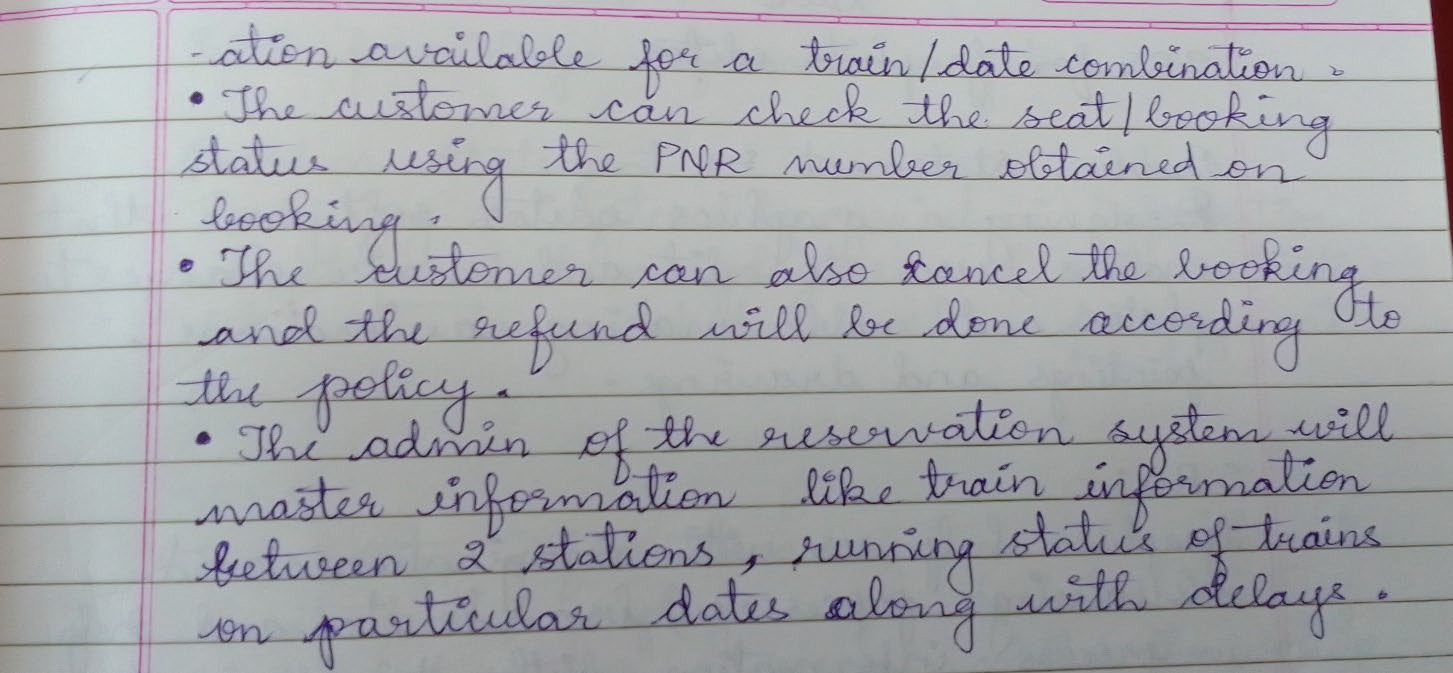 -ation available for a train/date combination.
• The customer can check the seat/booking
status using the PNR number obtained on
booking.
• The customer can also cancel the booking
and the refund will be done according to
the policy.
• The admin of the reservation system will
master information like train information
between 2 stations, running status of trains
on particular dates along with delays.